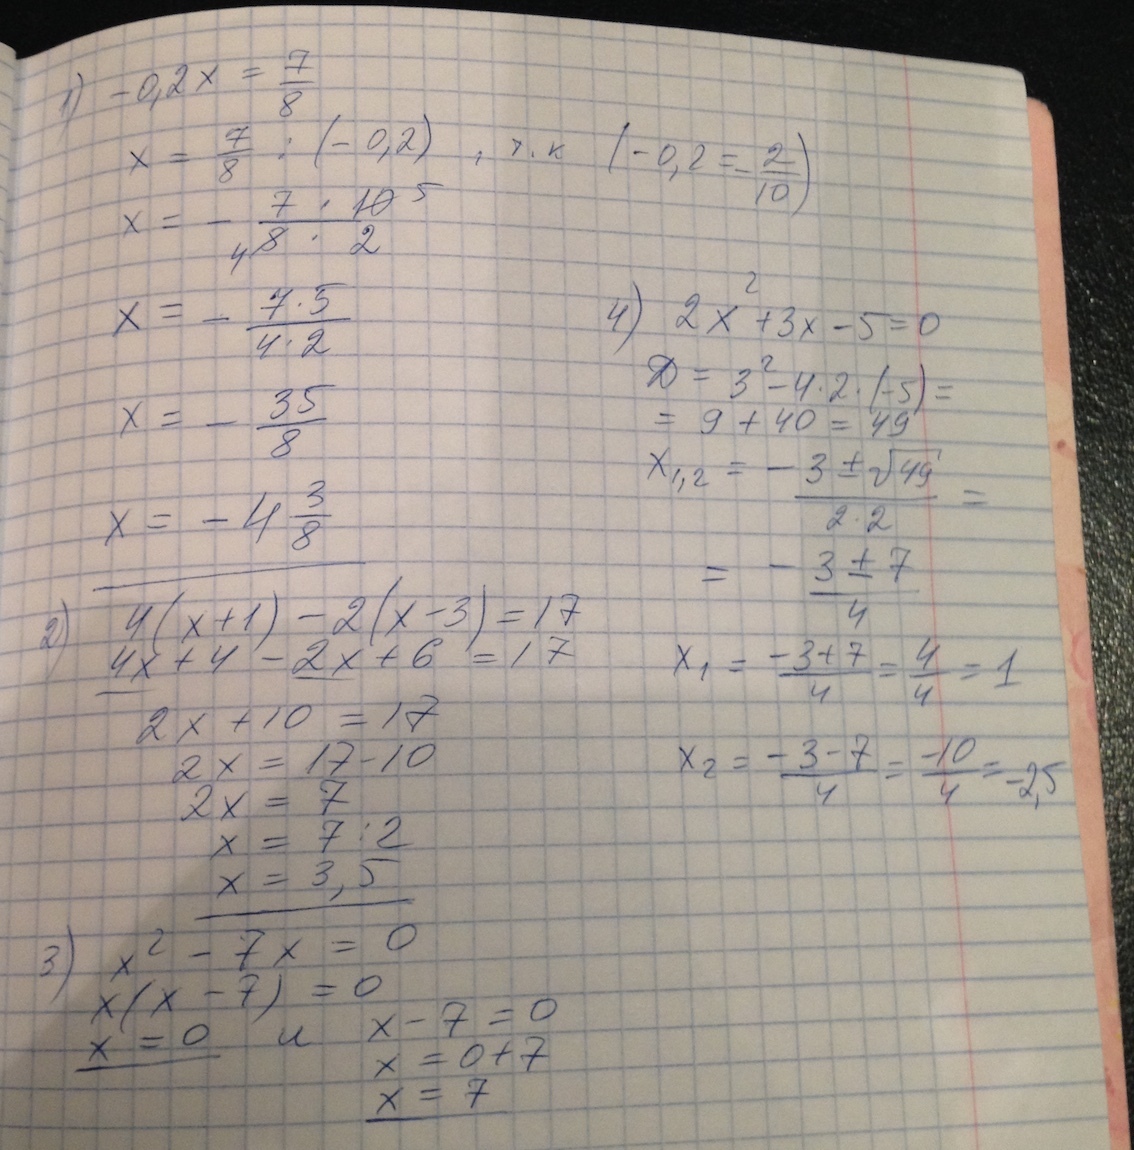 1) -0,2x = 7/8
x = 7/8 : (-0,2) , т.к (-0,2 = -2/10)
x = - 7 · 10 5 / 4 8 · 2
x = - 7·5/4·2
x = - 35/8
x = -4 3/8
2) 4(x+1) - 2(x-3) = 17
4x + 4 - 2x + 6 = 17
2x + 10 = 17
2x = 17-10
2x = 7
x = 7:2
x = 3,5
3) x² - 7x = 0
x(x - 7) = 0
x = 0 и x - 7 = 0
x = 0+7
x = 7
4) 2x² + 3x - 5 = 0
D = 3² - 4·2·(-5) =
= 9 + 40 = 49
x1,2 = - 3 ± √49 / 2·2 =
= - 3 ± 7 / 4
x1 = -3+7/4 = 4/4 = 1
x2 = -3-7/4 = -10/4 = -2,5